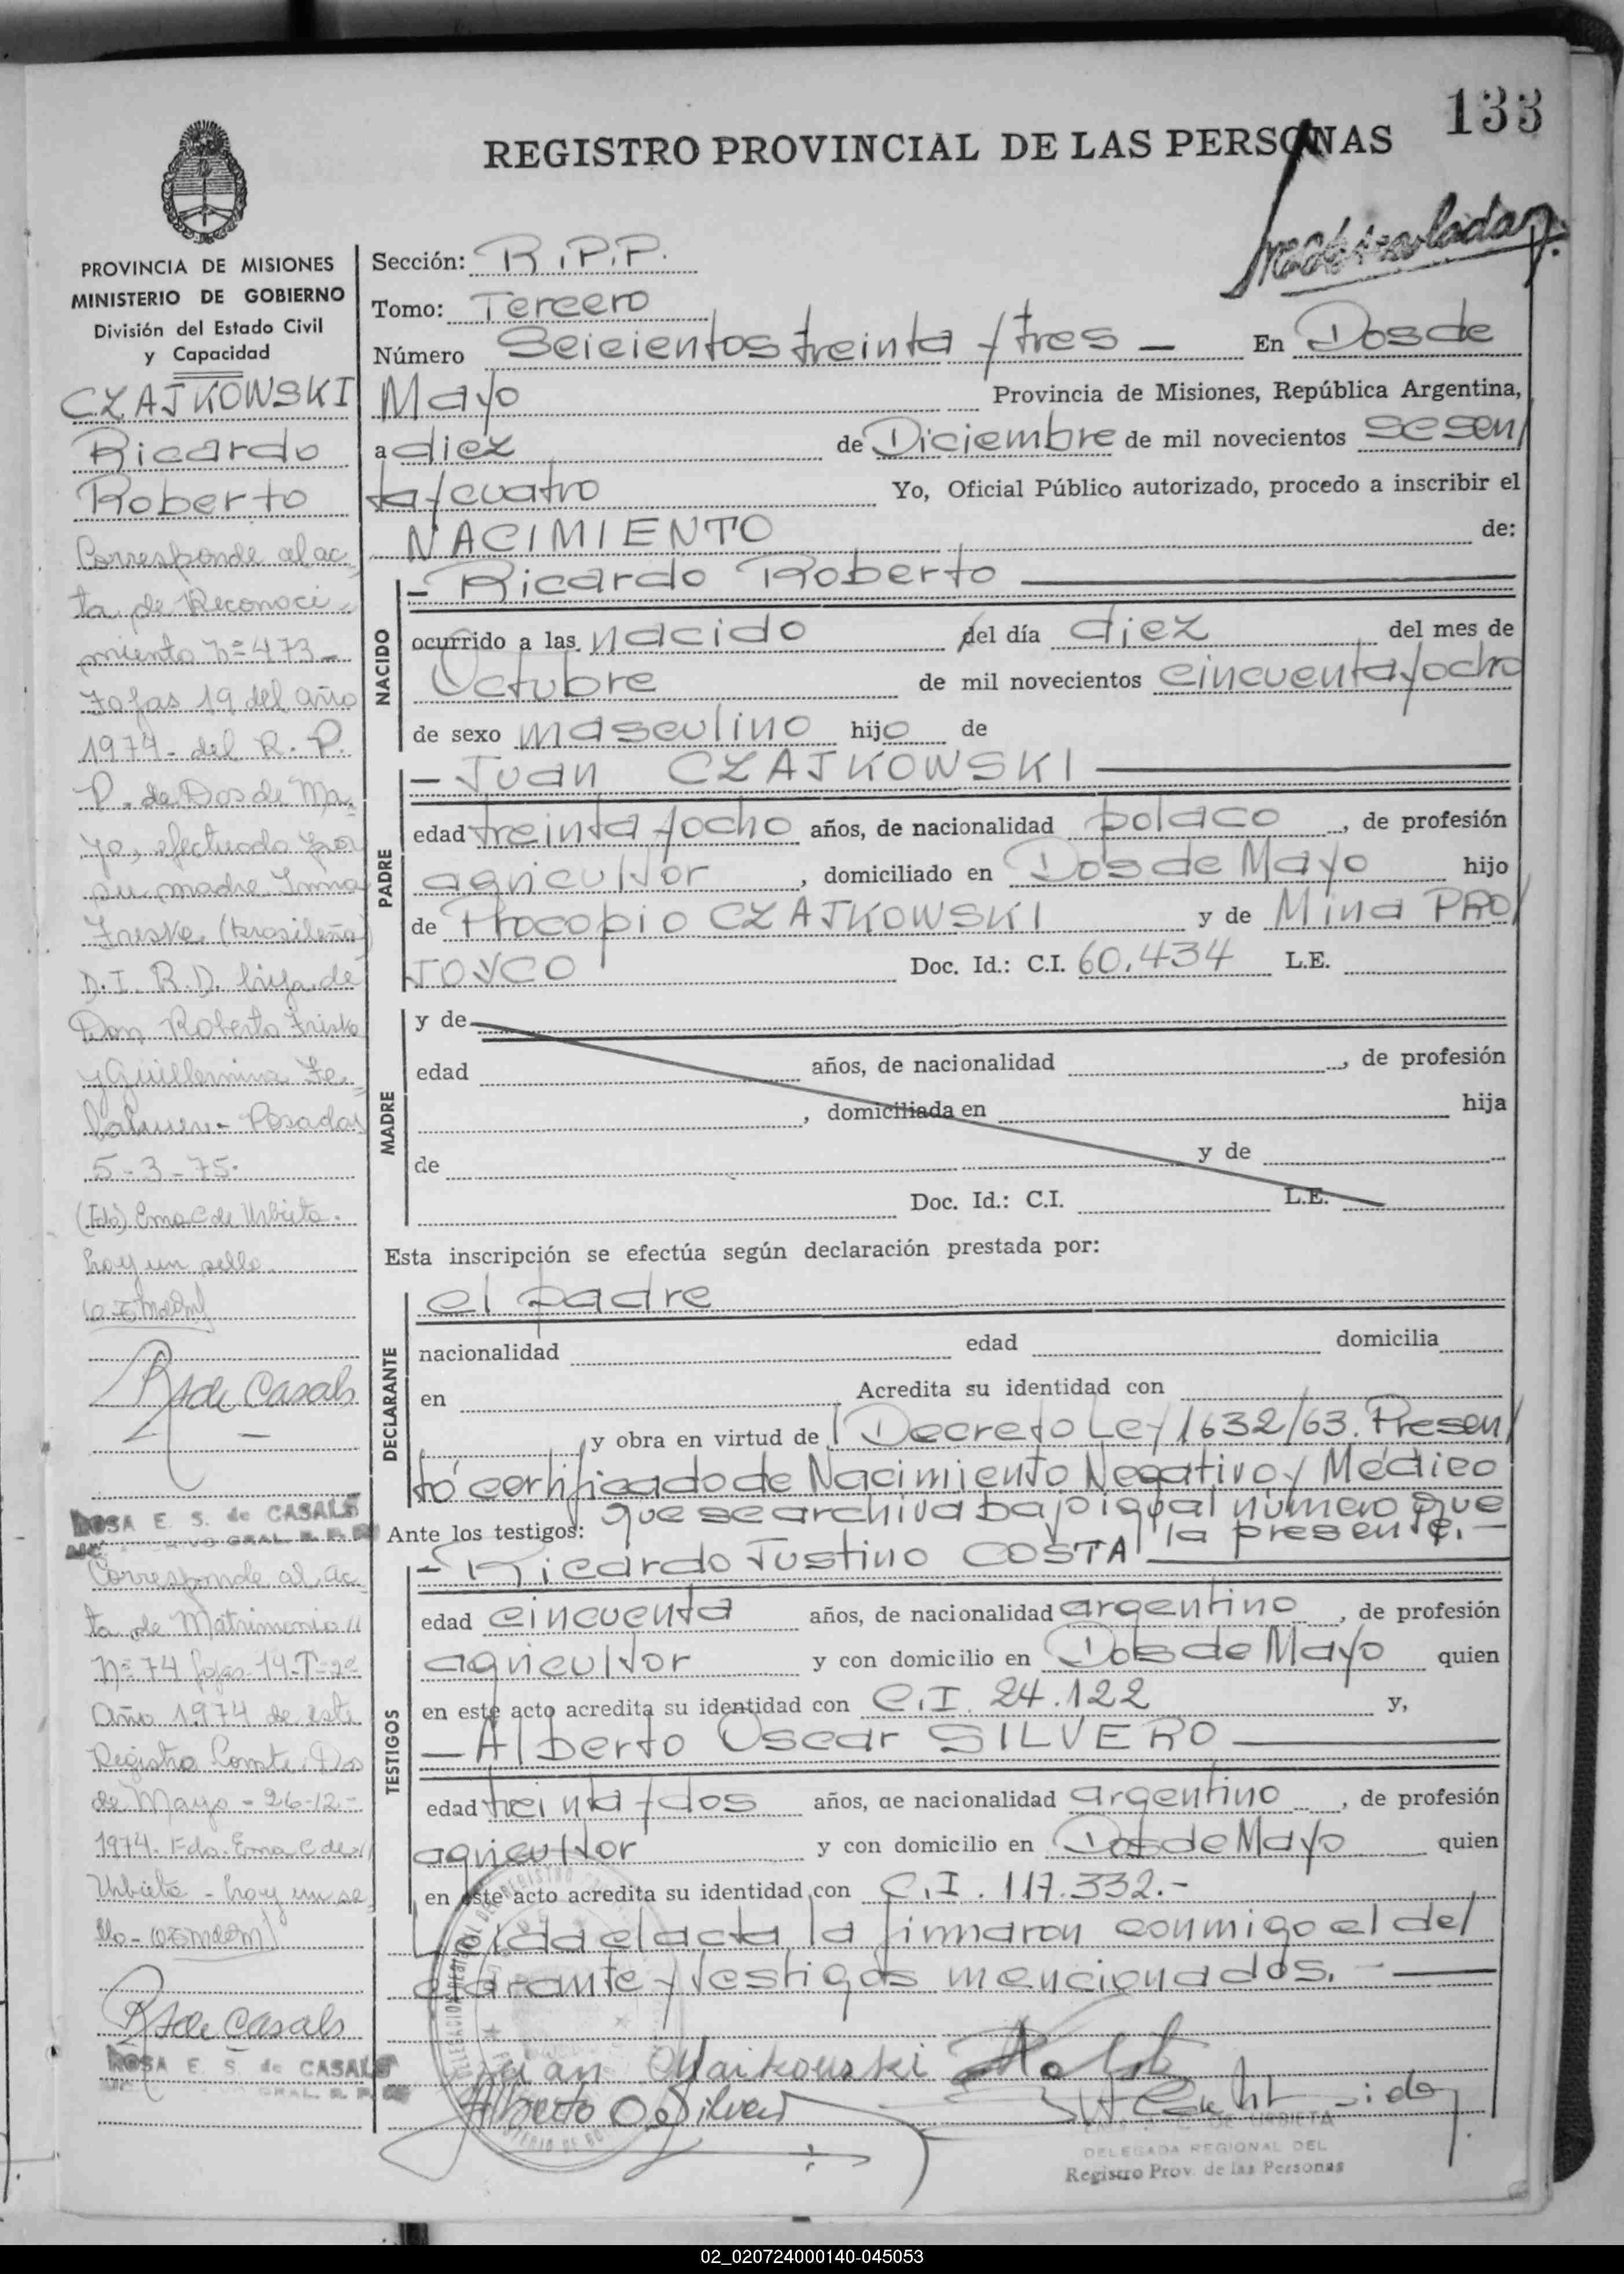 133
REGISTRO PROVINCIAL DE LAS PERSONAS
PROVINCIA DE MISIONES
MINISTERIO DE GOBIERNO
División del Estado Civil
y Capacidad
CZAJKOWSKI
Ricardo
Roberto
Corresponde al ac
ta de Reconoci-
miento Nº 473-
Fojas 19 del año
1974- del R. P.
P. de Dos de Ma-
yo, efectuado por
su madre Irma
(brasileña)
D.I. R.D. hija de
Don Roberto Friske
y Guillermina
Posadas
5-3-75.
(Fdo) Ema C de Urbieta.
hay un sello.
R S de Casals
ROSA E. S. de CASALS
Corresponde al ac
ta de Matrimonio
Nº 74 fojas-14-T-2º
Año 1974 de este
Registro Dos
de Mayo - 26-12-
1974. Fdo. Ema C de
Urbieta - hay un se
llo-
R S de Casals
ROSA E. S. de CASALS
Sección: R.P.P.
Tomo: Tercero
Número Seicientos treinta y tres — En Dos de
Mayo Provincia de Misiones, República Argentina,
a diez de Diciembre de mil novecientos sesen/
ta y cuatro Yo, Oficial Público autorizado, procedo a inscribir el
NACIMIENTO de:
NACIDO
- Ricardo Roberto
ocurrido a las nacido el día diez del mes de
Octubre de mil novecientos cincuenta y ocho
de sexo masculino hijo de
PADRE
- Juan CZAJKOWSKI
edad treinta y ocho años, de nacionalidad polaco, de profesión
agricultor, domiciliado en Dos de Mayo hijo
de Procopio CZAJKOWSKI y de Mina PRO/
JOVCO Doc. Id.: C.I. 60.434 L.E.
MADRE
y de
edad años, de nacionalidad , de profesión
, domiciliada en hija
de y de
Doc. Id.: C.I. L.E.
Esta inscripción se efectúa según declaración prestada por:
DECLARANTE
el padre
nacionalidad edad domicilia
en Acredita su identidad con
y obra en virtud de Decreto Ley 1632/63. Presen/
tó certificado de Nacimiento Negativo y Médico
que se archiva bajo igual número que
Ante los testigos: la presente.-
TESTIGOS
- Ricardo Justino COSTA
edad cincuenta años, de nacionalidad argentino, de profesión
agricultor y con domicilio en Dos de Mayo quien
en este acto acredita su identidad con C.I. 24.122 y,
- Alberto Oscar SILVERO
edad treinta y dos años, de nacionalidad argentino, de profesión
agricultor y con domicilio en Dos de Mayo quien
en este acto acredita su identidad con C.I. 117.332.-
Leida el acta la firmaron conmigo el del/
clarante y testigos mencionados.-
Juan Czaikouski
Alberto O. Silvero
DELEGADA REGIONAL DEL
Registro Prov. de las Personas
02_020724000140-045053